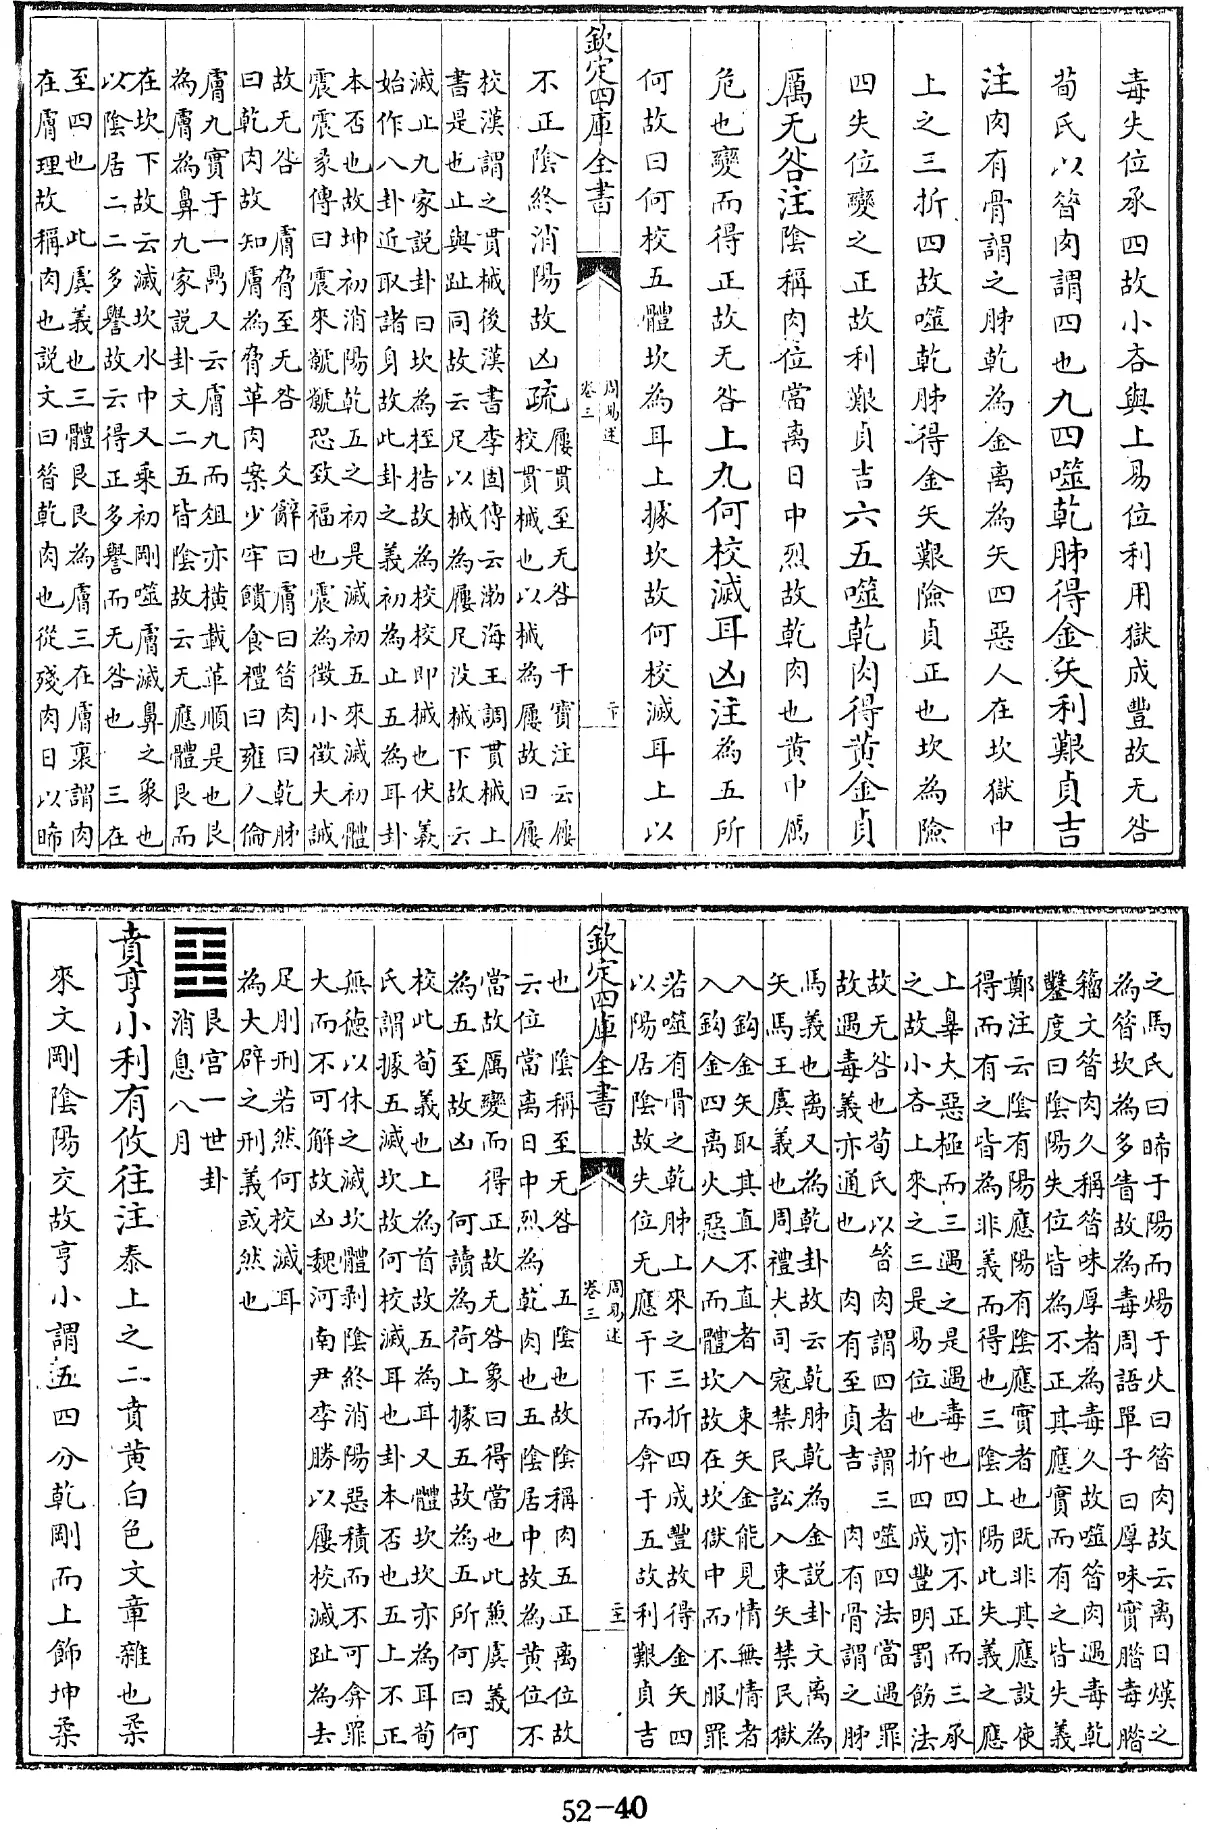 毒失位承四故小吝與上易位利用獄成豐故无咎
荀氏以昝肉謂四也九四噬乾胏得金矢利艱貞吉
注肉有骨謂之胏乾為金離為矢四惡人在坎獄中
上之三折四故噬乾胏得金矢艱險貞正也坎為險
四失位變之正故利艱貞吉六五噬乾肉得黄金貞
厲无咎注陰稱肉位當離日中烈故乾肉也黄中厲
危也變而得正故无咎上九何校滅耳凶注為五所
何故曰何校五體坎為耳上據坎故何校滅耳上以
欽定四庫全書
周易述
卷三
二十
不正陰終消陽故凶疏屨貫至无咎 干寶注云屨
校貫械也以械為屨故曰屨
校漢謂之貫械後漢書李固傳云渤海王調貫械上
書是也止與趾同故云足以械為屨足没械下故云
滅止九家説卦曰坎為桎梏故為校校即械也伏羲
始作八卦近取諸身故此卦之義初為止五為耳卦
本否也故坤初消陽乾五之初是滅初五來滅初體
震震彖傳曰震來虩虩恐致福也震為徴小徴大誡
故无咎 膚脅至无咎 爻辭曰膚曰昝肉曰乾胏
曰乾肉故知膚為脅革肉案少牢饋食禮曰雍人倫
膚九實于一鼎又云膚九而俎亦横載革順是也艮
為膚為鼻九家説卦文二五皆陰故云无應體艮而
在坎下故云滅坎水中又乘初剛噬膚滅鼻之象也
以陰居二二多譽故云得正多譽而无咎也 三在
至四也 此虞義也三體艮艮為膚三在膚裏謂肉
在膚理故稱肉也説文曰昝乾肉也從殘肉日以晞
之馬氏曰晞于陽而煬于火曰昝肉故云離日熯之
為昝坎為多眚故為毒周語單子曰厚味實腊毒腊
籀文昝肉久稱昝味厚者為毒久故噬昝肉遇毒乾
鑿度曰陰陽失位皆為不正其應實而有之皆失義
鄭注云陰有陽應陽有陰應實者也既非其應設使
得而有之皆為非義而得也三陰上陽此失義之應
上辠大惡極而三遇之是遇毒也四亦不正而三承
之故小吝上來之三是易位也折四成豐明罰飭法
故无咎也荀氏以昝肉謂四者謂三噬四法當遇罪
故遇毒義亦通也 肉有至貞吉 肉有骨謂之胏
馬義也離又為乾卦故云乾胏乾為金説卦文離為
矢馬王虞義也周禮大司寇禁民訟入束矢禁民獄
入鈎金矢取其直不直者入束矢金能見情無情者
入鈎金四離火惡人而體坎故在坎獄中而不服罪
若噬有骨之乾胏上來之三折四成豐故得金矢四
以陽居陰故失位无應于下而弇于五故利艱貞吉
欽定四庫全書
周易述
卷三
二十一
也 陰稱至无咎 五陰也故陰稱肉五正離位故
云位當離日中烈為乾肉也五陰居中故為黄位不
當故厲變而得正故无咎象曰得當也此兼虞義
為五至故凶 何讀為荷上據五故為五所何曰何
校此荀義也上為首故五為耳又體坎坎亦為耳荀
氏謂據五滅坎故何校滅耳也卦本否也五上不正
無德以休之滅坎體剥陰終消陽惡積而不可弇罪
大而不可解故凶魏河南尹李勝以屨校滅趾為去
足刖刑若然何校滅耳
為大辟之刑義或然也
䷕艮宫一世卦
消息八月
賁亨小利有攸往注泰上之二賁黄白色文章雜也柔
來文剛陰陽交故亨小謂五四分乾剛而上飾坤柔
52-40